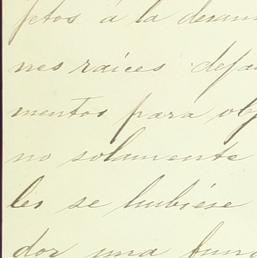 fetos á la desam
nes raices defa
mentos para obj
no solamente
les se hubiése
dor una fun